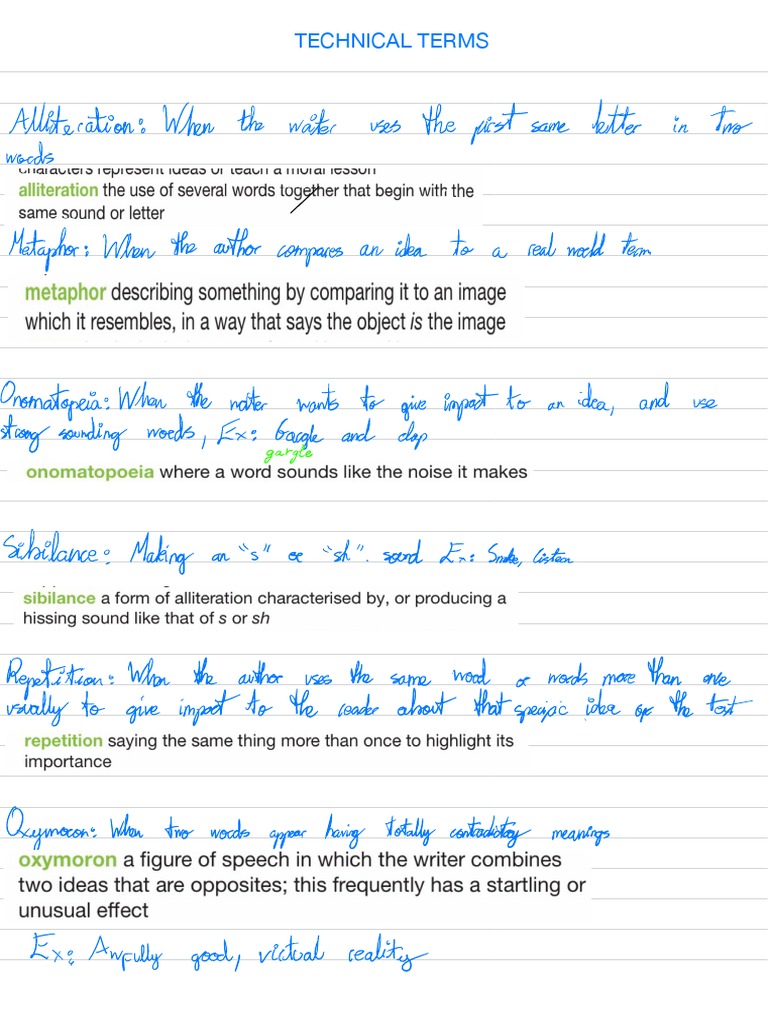 TECHNICAL TERMS
Alliteration: When the writer uses the first same letter in two
words
characters represent ideas or teach a moral lesson
alliteration the use of several words together that begin with the
same sound or letter
Metaphor: When the author compares an idea to a real world term
metaphor describing something by comparing it to an image
which it resembles, in a way that says the object is the image
Onomatopeia: When the writer wants to give impact to an idea, and use
strong sounding words, Ex: Gargle and clap
gargle
onomatopoeia where a word sounds like the noise it makes
Sibilance: Making an "s" or "sh". sound Ex: Snake, listen
sibilance a form of alliteration characterised by, or producing a
hissing sound like that of s or sh
Repetition: When the author uses the same word or words more than one
usually to give impact to the reader about that specific idea of the text
repetition saying the same thing more than once to highlight its
importance
Oxymoron: When two words appear having totally contradictory meanings
oxymoron a figure of speech in which the writer combines
two ideas that are opposites; this frequently has a startling or
unusual effect
Ex: Awfully good, virtual reality